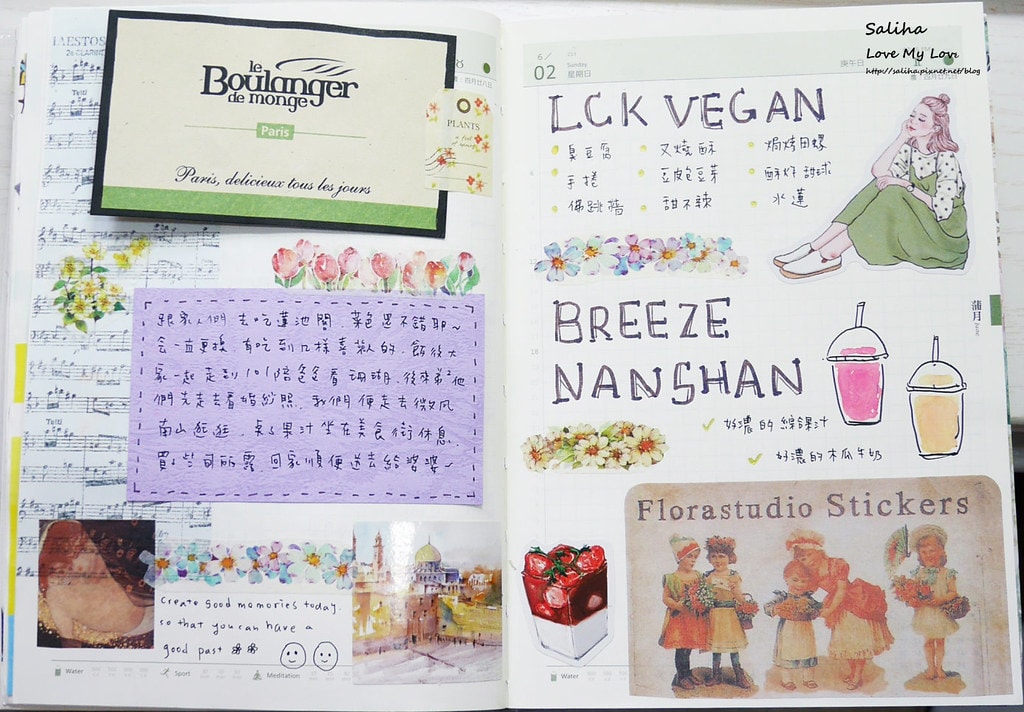 MAESTOSO
2e CLARINET
Tutti
le
Boulanger
de monge
Paris
Paris, delicieux tous les jours
PLANTS
四月廿八日
跟家人們去吃蓮池閣,菜色還不錯耶~
會一直更換,有吃到幾樣喜歡的,飯後大
家一起走到101陪爸爸看珊瑚,後來弟他
們先走去看婚紗照,我們便走去微風
南山逛逛,桌果汁坐在美食街休息,
買些司所露回家順便送去給婆婆~
Tutti
create good memories today
so that you can have a
good past
Water
Sport
Meditation
Saliha
Love My Love
http://saliha.pixnet.net/blog
6/
02
Sunday
星期日
庚午日
四月廿九日
LCK VEGAN
臭豆腐
叉燒酥
焗烤田螺
手捲
豆皮豆芽
酥炸甜球
佛跳牆
甜不辣
水蓮
BREEZE
NANSHAN
蒲月 June
18
好濃的綜合果汁
好濃的木瓜牛奶
Florastudio Stickers
Water